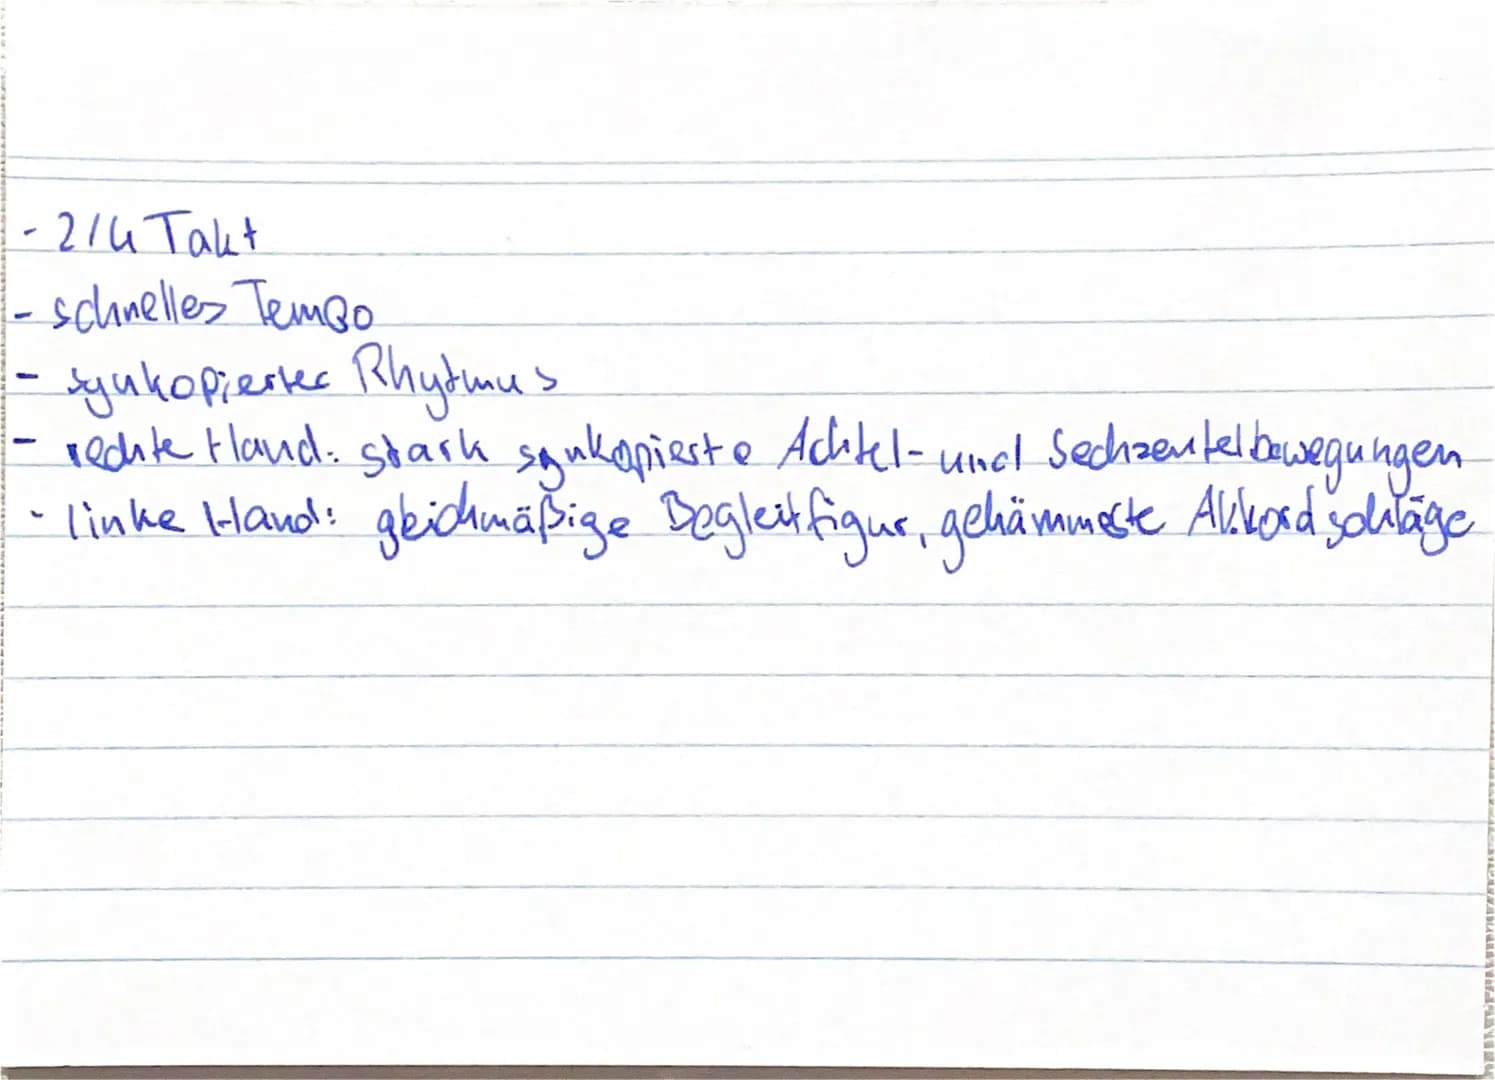 - 2/4 Takt
- schnelles Tempo
- synkopierter Rhytmus
- rechte Hand: stark synkopierte Achtel- und Sechzentelbewegungen
- linke Hand: gleichmäßige Begleitfigur, gehämmerte Akkordschläge